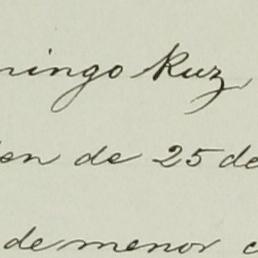 mingo Ruz
den de 25 de
de menor c